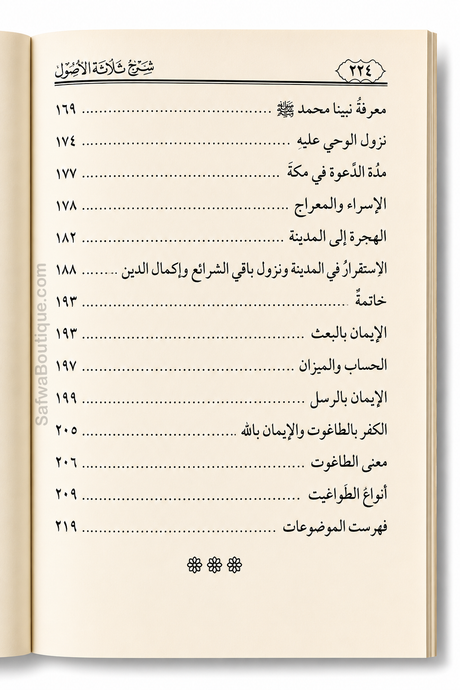 ٢٢٤ شرح ثلاثة الأصول
معرفةُ نبينا محمد ﷺ ........................................ ١٦٩
نزول الوحي عليهِ ........................................ ١٧٤
مدُة الدَّعوة في مكةَ ........................................ ١٧٧
الإسراء والمعراج ........................................ ١٧٨
الهجرة إلى المدينة ........................................ ١٨٢
الاِستقرارُ في المدينة ونزول باقي الشرائع وإكمال الدين ......... ١٨٨
خاتمةٌ ........................................ ١٩٣
الإيمان بالبعث ........................................ ١٩٣
الحساب والميزان ........................................ ١٩٧
الإيمان بالرسل ........................................ ١٩٩
الكفر بالطاغوت والإيمان بالله ........................................ ٢٠٥
معنى الطاغوت ........................................ ٢٠٦
أنواعُ الطَواغيت ........................................ ٢٠٩
فهرست الموضوعات ........................................ ٢١٩
SafwaBoutique.com